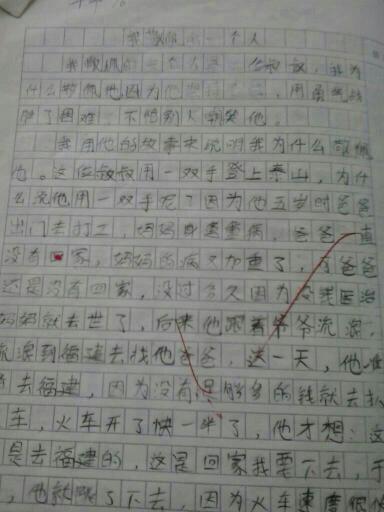 我敬佩的一个人
我敬佩的一个人是一位叔叔，我为
什么敬佩他因为他，用勇气战
胜了困难，不怕别人嘲笑他。
我用他的故事来说明我为什么敬佩
他。这位叔叔用一双手登上泰山，为什
么说他用一双手呢？因为他五岁时爸爸
出门去打工，妈妈身患重病，爸爸一直
没有回家，妈妈的病又加重了，可爸爸
还是没有回家，没过多久因为没钱医治
妈妈就去世了，后来他跟着爷爷流浪，
流浪到福建去找他爸爸，这一天，他准
去福建，因为没有足够多的钱就去扒
车，火车开了快一半了，他才想：这
是去福建的，这是回家我要下去，于
，他就跳了下去，因为火车速度很